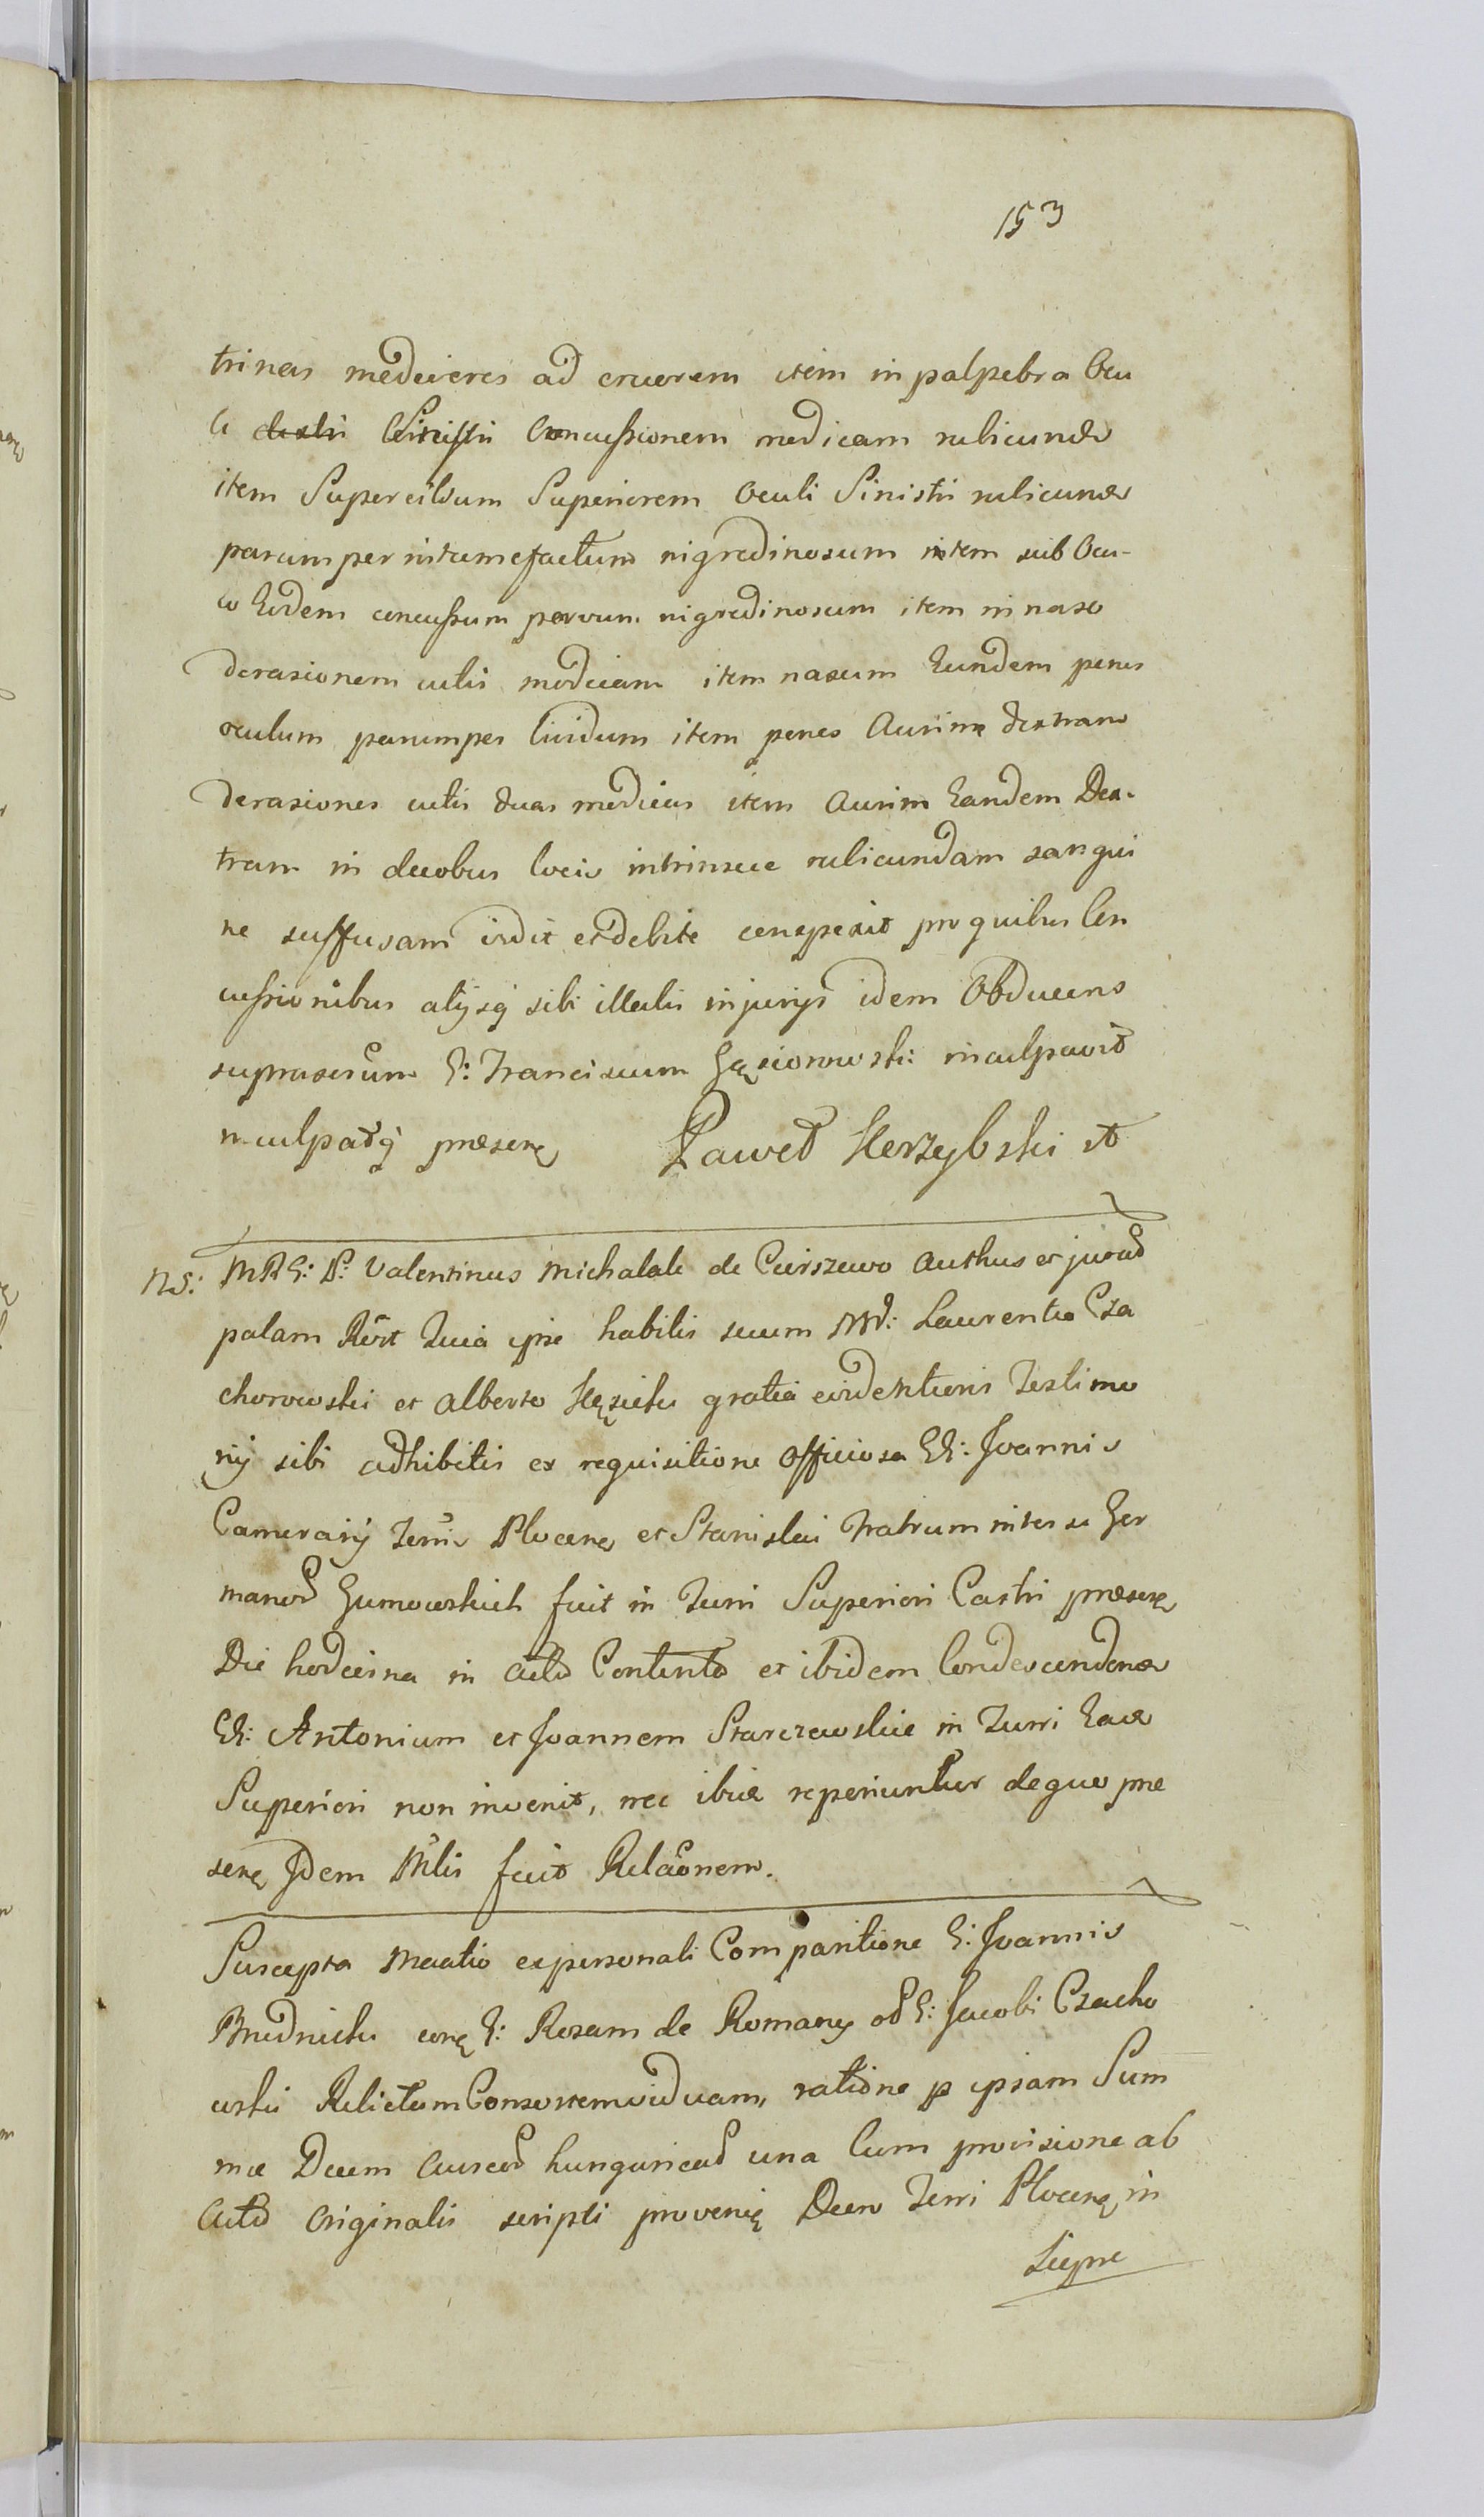 153
trinas mediocres ad cruorem item in palpebra Ocu
li dextri Sinistri Concussionem modicam rubicund
item Supercilium Superiorem Oculi Sinistri rubicund
parumper intumefactum nigredinosum item sub Ocu-
lo Eodem concussum parvum nigredinosum item in naso
derasionem cutis modicam item nasum Eundem penes
oculum parumper lividum item penes Aurim dextram
derasiones cutis duas modicas item Aurim Eandem Dex-
tram in duobus locis intrinsece rubicundam sangui
ne suffusam vidit et debite conspexit pro quibus Con
cussionibus alijsq sibi illatis injurijs idem Obducens
suprascrum G: Franciscum Gąsiorowski inculpavit
inculpatq præsenę Paweł Skrzybski
NS: MRG: P: Valentinus Michalak de Ciirszewo Authus et jurad
palam Rört Quia ipse habilis secum NN: Laurentio Cza
chorowski et Alberto Kęsicki gratia evidentioris Testimo
nij sibi adhibitis ex requisitione Officiosa GG: Joannis
Camerarij Terris Plocenę et Stanislai Fratrum inter se Ger
manor Gumowskich fuit in Turri Superiori Castri præsenę
Die hodierna in Actu Contento et ibidem Condescendend
GG: Antonium et Joannem Starczewskie in Turri Ead
Superiori non invenit, nec ibid reperiuntur de quo præ
senę Idem Mlis fecit Relaonem.
Suscepta ex personali Comparitione G: Joannis
Brudnicki conę G: Rosam de Romany od G: Jacobi Czacho
wski Relictam Consortem viduam, ratione p ipsam Sum
mæ Decem Aureor hungaricar una Cum provisione ab
Actu Originalis scripti provenię Decr Terri Plocenę in
Lipne